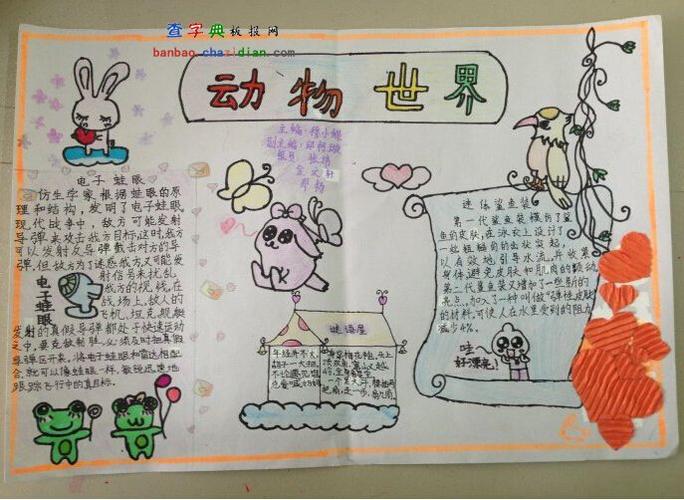 查字典板报网
banbao.chazidian.com
动物世界
主编：
副主编：
编员：张扬
电子蛙眼
仿生学家根据蛙眼的原
理和结构，发明了电子蛙眼。
现代战争中，敌方可能发射
导弹来攻击我方目标，这时我方
可以发射反导弹截击对方的导
弹，但敌方为了迷惑我方又可能发
射信号来扰乱
我方的视线，在
战场上，敌人的
飞机，坦克舰艇
发射的真假导弹都处于快速运动
之中，要克敌制胜，必须及时把真假
导弹区开来，将电子蛙眼和雷达相配
合，就可以像蛙眼一样，敏锐迅速地
跟踪飞行中的真目标。
电子蛙眼
谜语屋
年纪并不大，
胡子一大把，
不论遇见谁，
总爱喊妈妈
迷你鲨鱼装
第一代鲨鱼装模仿了鲨
鱼的皮肤，在泳衣上设计了
一些粗糙的齿状突起，
以有效地引导水流，并收紧
身体避免皮肤和肌肉的颤动，
第二代鲨鱼装又增加了一些新的
亮点，加入了一种叫做“弹性皮肤”
的材料，可使人在水里受到的阻力
减少4%。
哇
好漂亮！